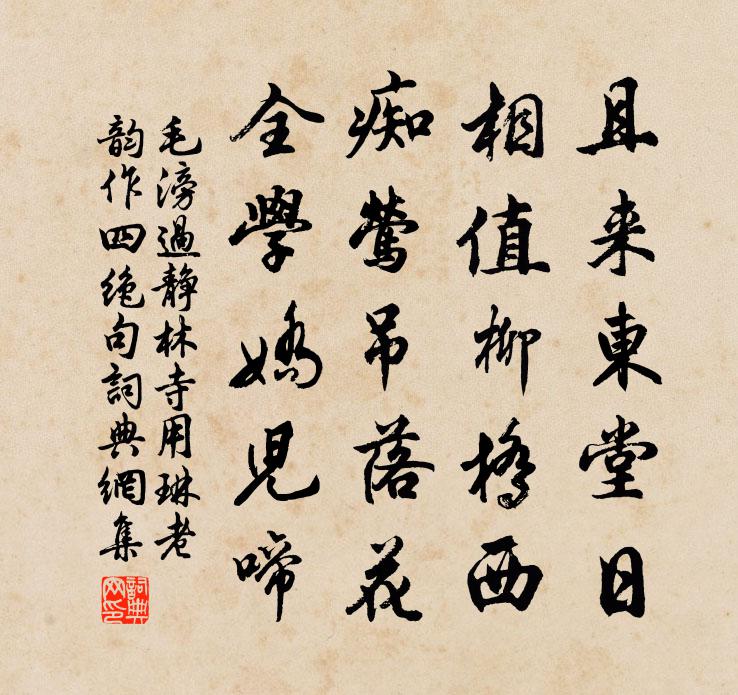 且来東堂日
相值柳橋西
痴鶯吊落花
全學嬌児啼
毛滂過静林寺用琳老
韵作四绝句詞典網集
詞典
网印